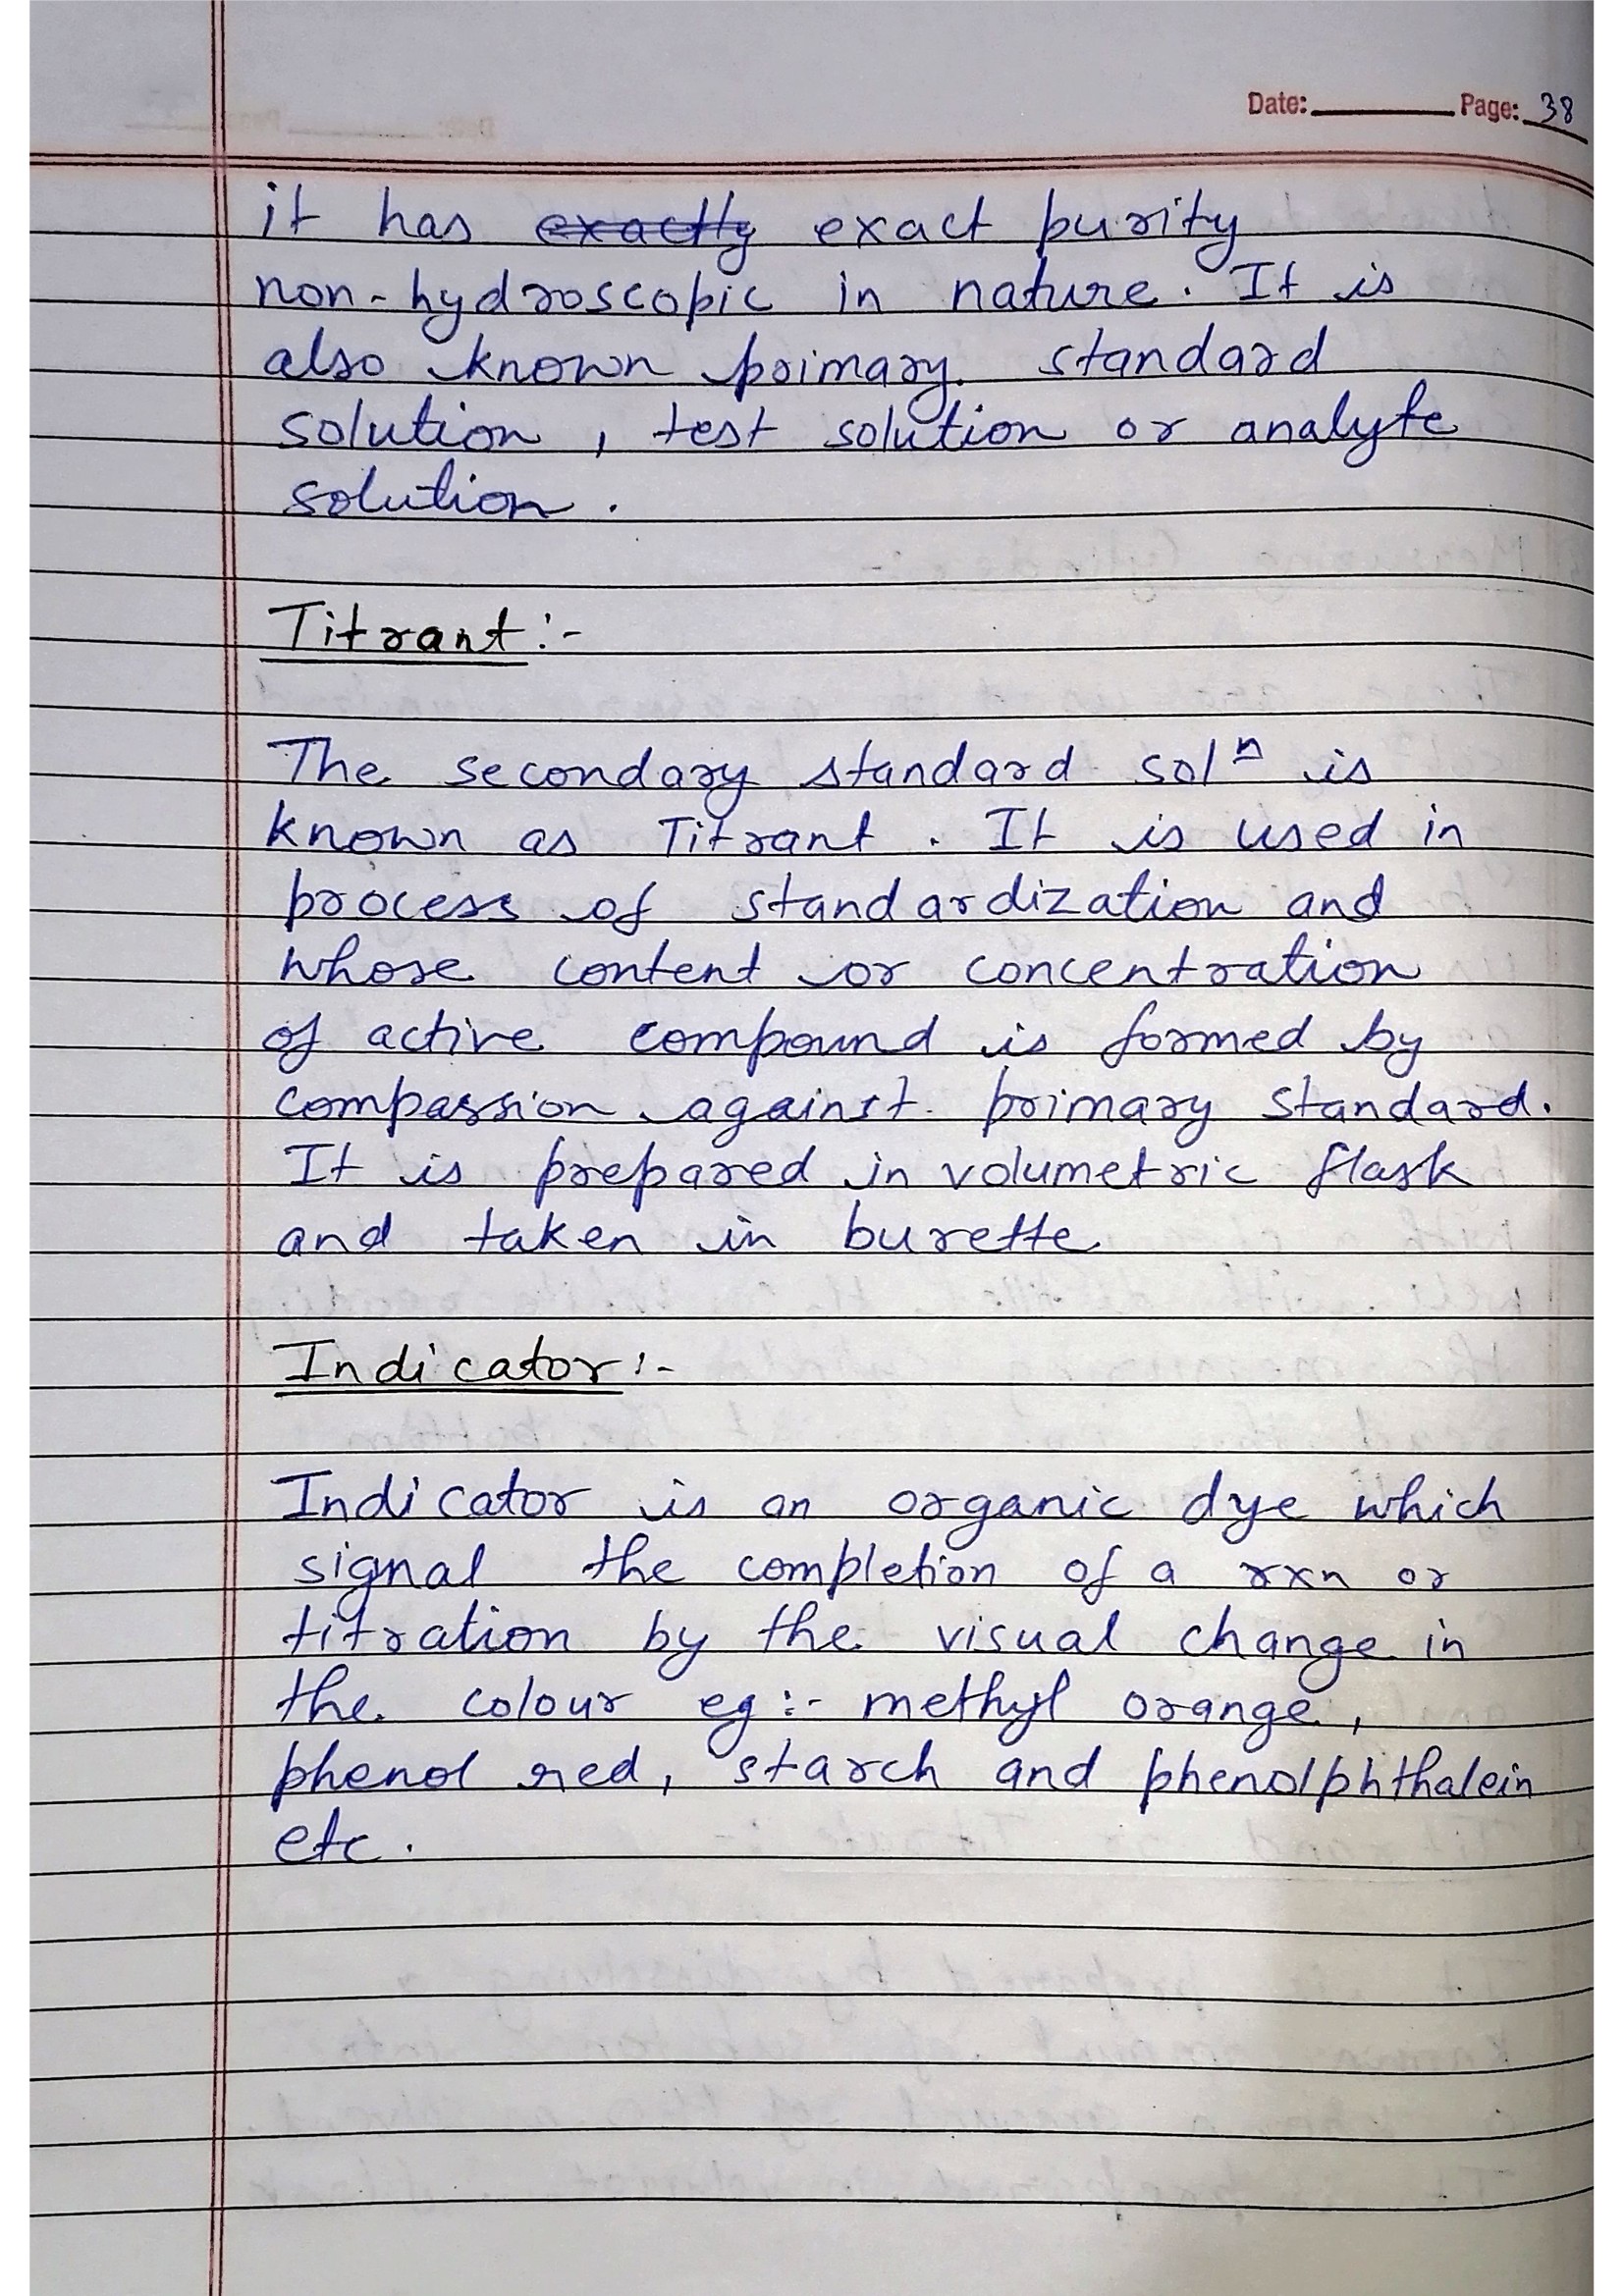 Date: Page: 38
it has exactly exact purity
non-hydroscopic in nature. It is
also known primary. standard
solution, test solution or analyte
solution.
Titrant:-
The secondary standard solⁿ is
known as Titrant. It is used in
process of standardization and
whose content or concentration
of active compound is formed by
compassion against. primary standard.
It is prepared in volumetric flask
and taken in burette
Indicator:-
Indicator is an organic dye which
signal the completion of a rxn or
titration by the visual change in
the colour eg:- methyl orange,
phenol red, starch and phenolphthalein
etc.